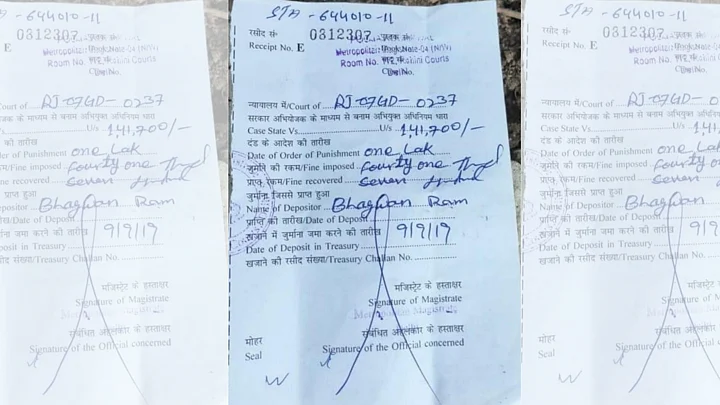 STA - 644010-11
रसीद सं॰
Receipt No. E 0312307
Room No. Rohini Courts
न्यायालय में/Court of RJ-07GD- 0237
सरकार अभियोजक के माध्यम से बनाम अभियुक्त अधिनियम धारा
Case State Vs. U/s 1,41,700/-
दंड के आदेश की तारीख
Date of Order of Punishment one Lak
जुर्माने की रकम/Fine imposed Fourty one
प्राप्त रकम/Fine recovered Seven
जुर्माना जिससे प्राप्त हुआ
Name of Depositor Bhagwan Ram
प्राप्ति की तारीख/Date of Deposit
खजाने में जुर्माना जमा करने की तारीख 9/9/19
Date of Deposit in Treasury
खजाने की रसीद संख्या/Treasury Challan No.
मजिस्ट्रेट के हस्ताक्षर
Signature of Magistrate
Metropolitan Magistrate
संबंधित अहलकार के हस्ताक्षर
मोहर
Signature of the Official concerned
Seal